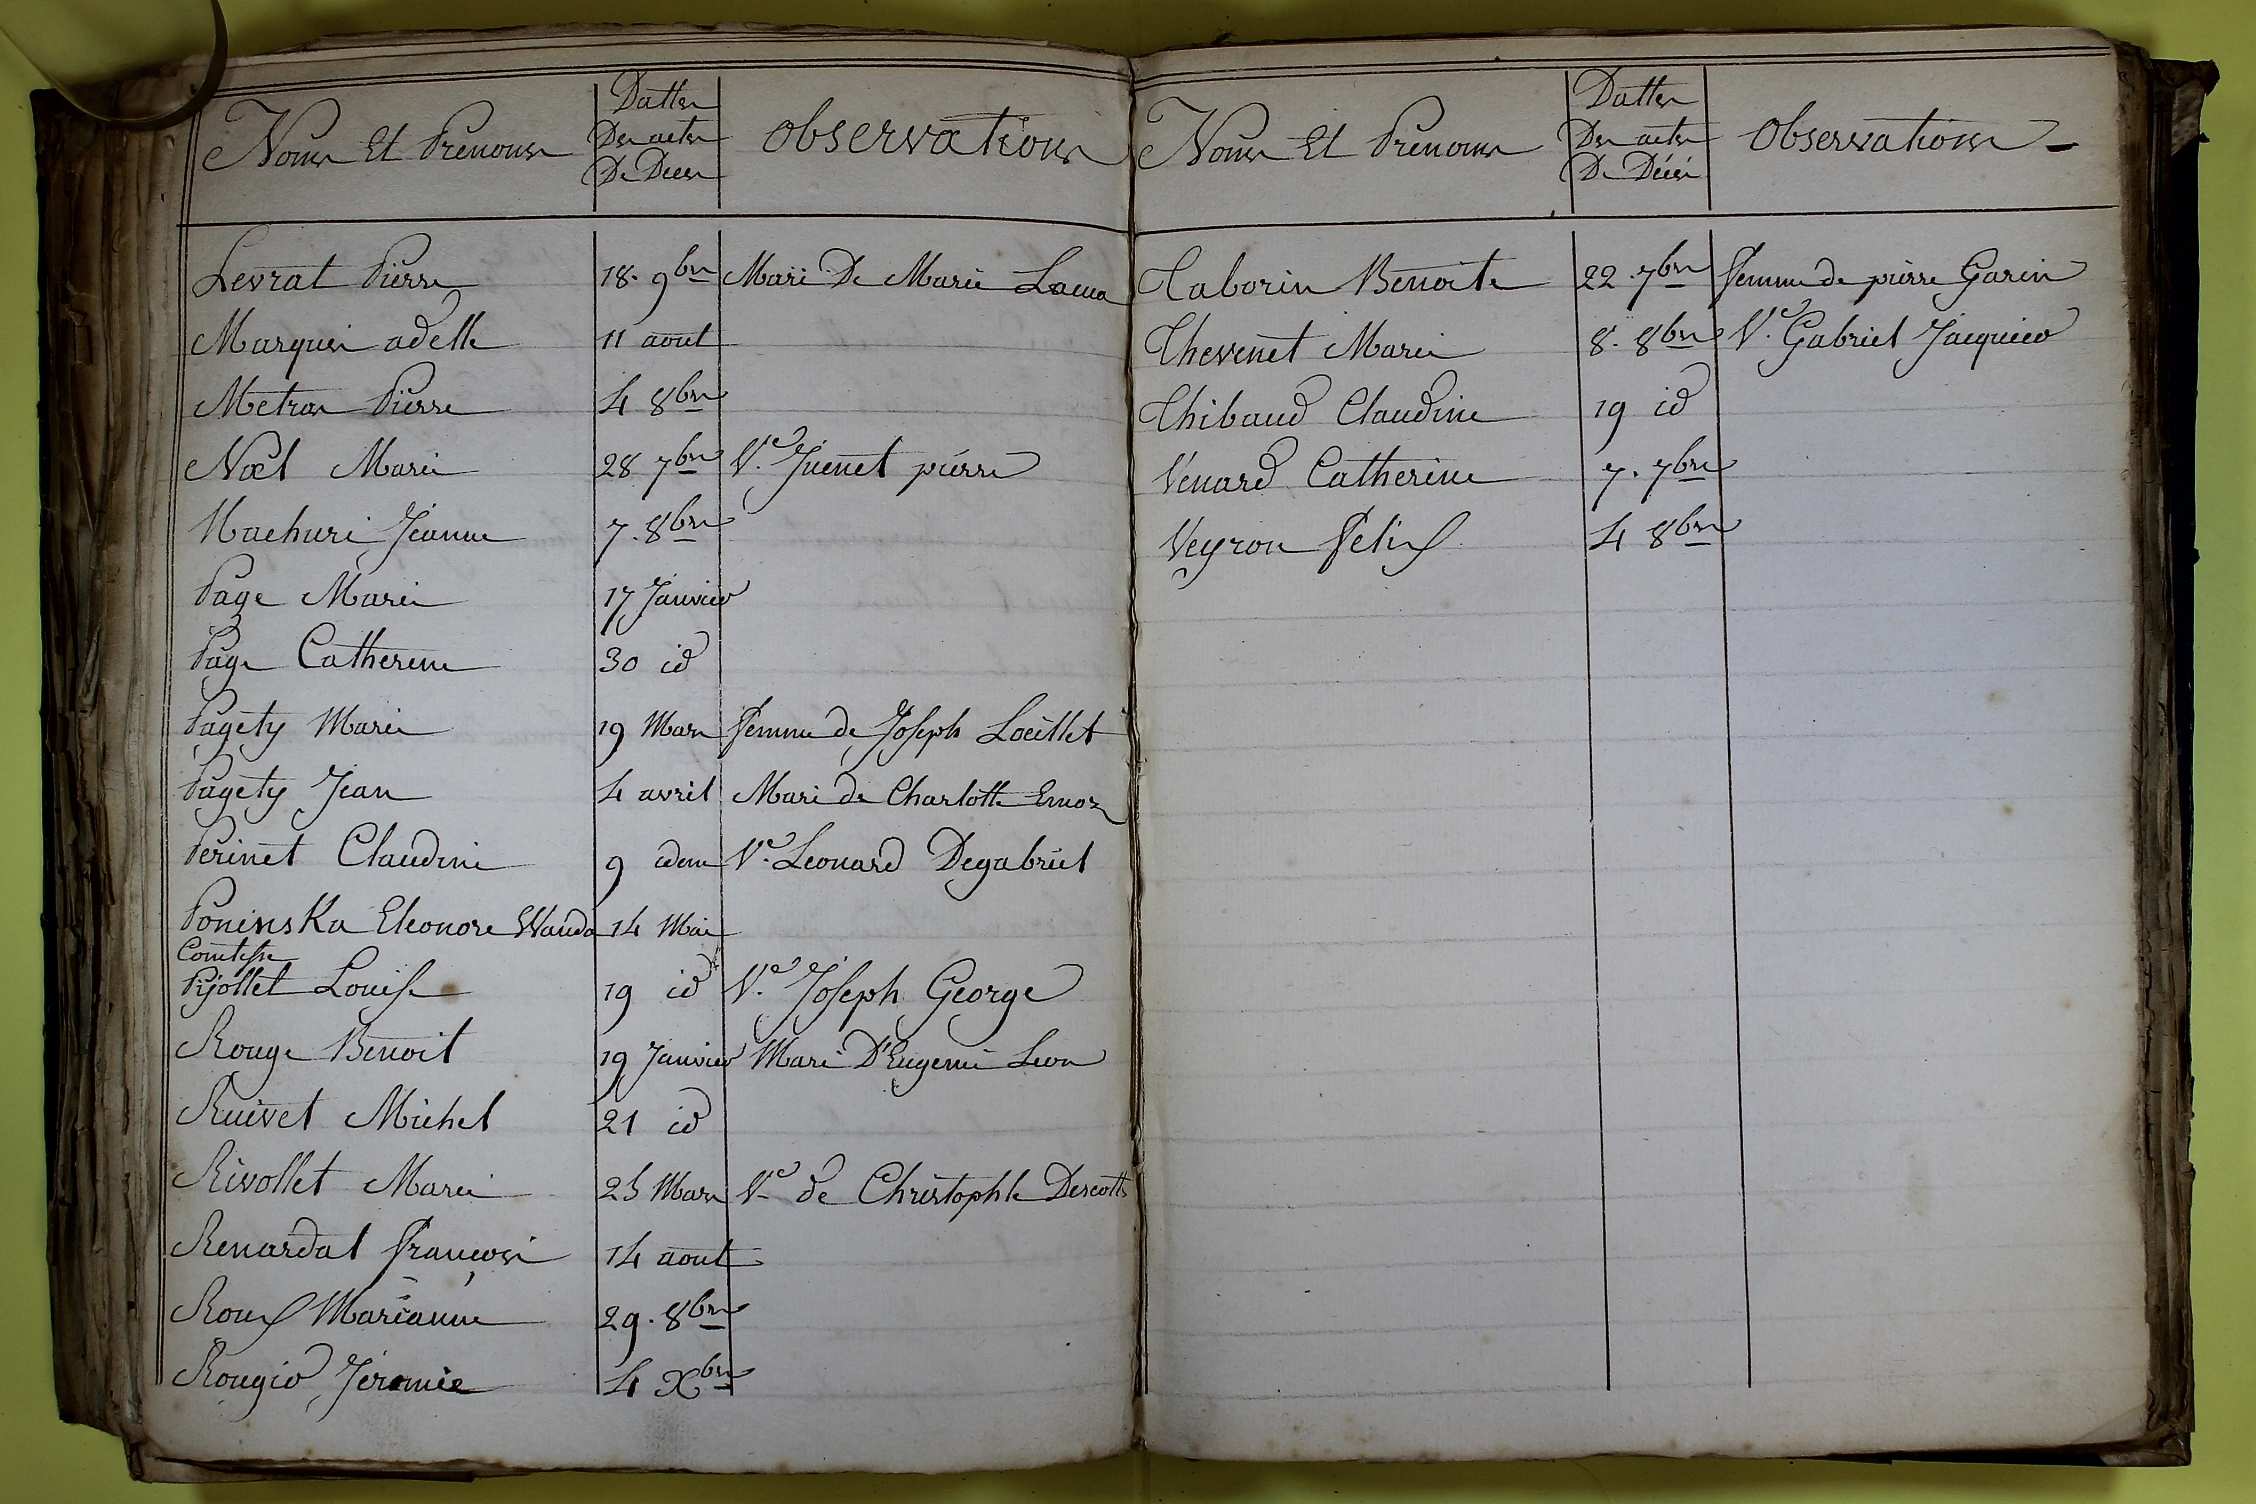 Noms Et Prenoms
Dattes
Des actes
De Deces
observations
Levrat Pierre 18. 9bre Mari De Marie
Marquis adelle 11 aout
Metras Pierre 4 8bre
Noël Marie 28 7bre Ve. Juenet pierre
Machuri Jeanne 7. 8bre
Page Marie 17 Janvier
Page Catherine 30 id
Pagety Marie 19 Mars femme de Joseph Loeillet
Pagety Jean 4 avril Mari de Charlotte Emoz
Perinet Claudine 9 idem Ve. Leonard Degabriel
Poninska Eleonore Wanda 14 Mai
Comtesse
Pijollet Louise 19 id Ve. Joseph George
Rouge Benoit 19 Janvier Mari D'Eugenie Leon
Ruivet Michel 21 id
Rivollet Marie 25 Mars Ve de Christophle Descotte
Renardat François 14 aout
Roux Marianne 29. 8bre
Rougier Jeromie 4 Xbre
Noms Et Prenoms
Dattes
Des actes
De Décés
Observations
Taborin Benoite 22. 7bre femme de pierre Garin
Thevenet Marie 8. 8bre Ve. Gabriel Jacquier
Thibaud Claudine 19 id
Venard Catherine 7. 7bre
Veyron Felix 4 8bre